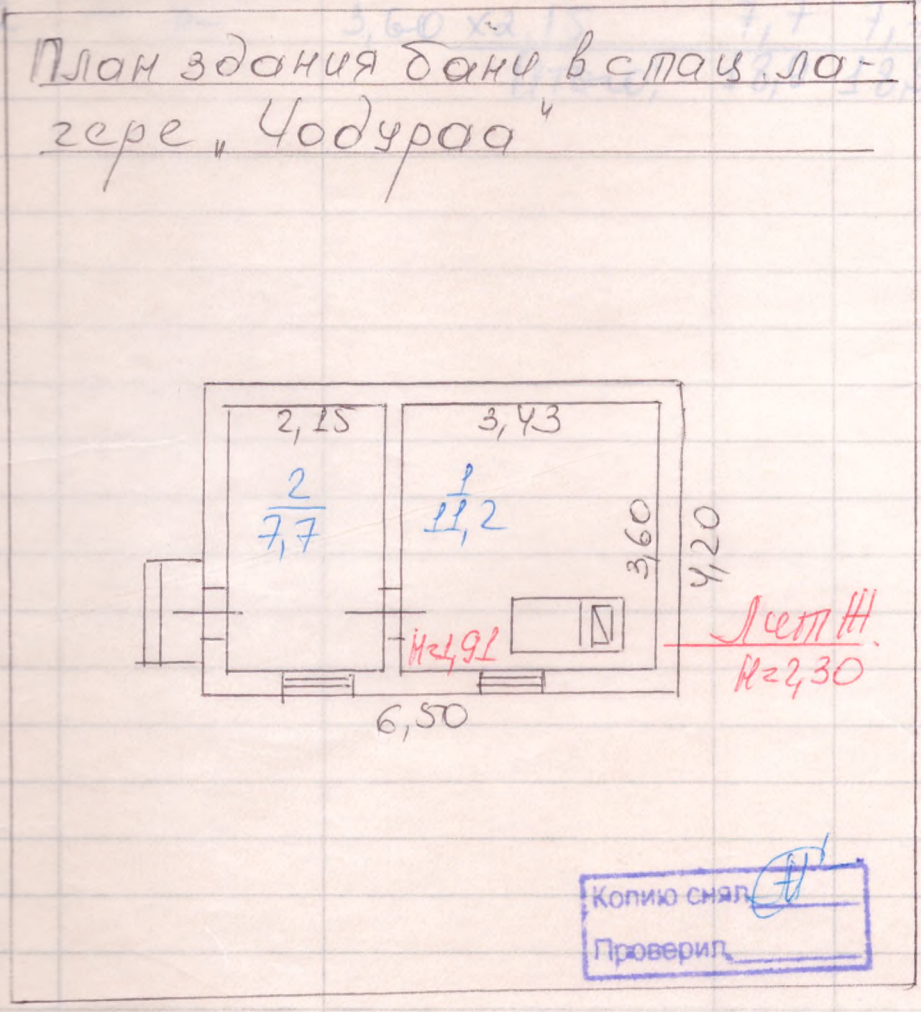 План здания бани в стац. ла-
гере „Чодураа"
2,15
3,43
2
7,7
1
11,2
3,60
4,20
H=1,91
Лит Ж
H=2,30
6,50
Копию снял
Проверил